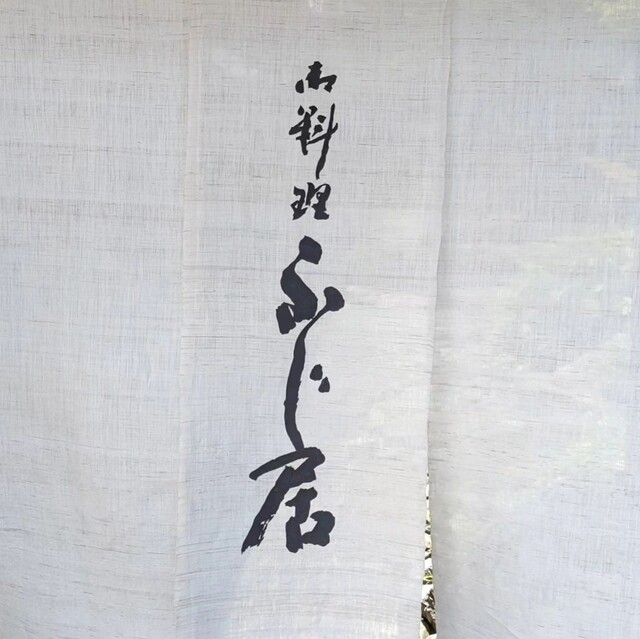 御料理ふじ居